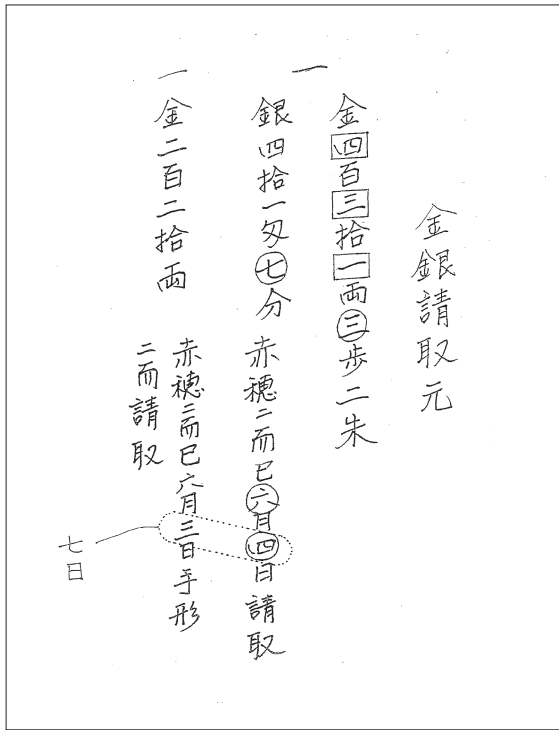 金銀請取元
一
金四百三拾一両三歩二朱
銀四拾一匁七分 赤穂ニ而巳六月四日請取
一金二百二拾両 赤穂ニ而巳六月三日手形
ニ而請取
七日